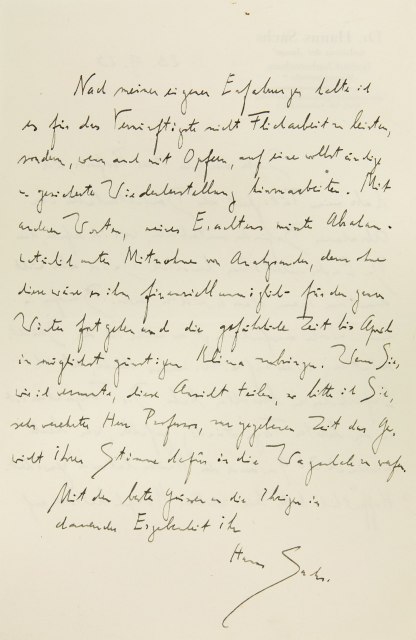 Nach meinen eigenen Erfahrungen halte ich
es für das Vernünftigste nicht Flickarbeit zu leisten,
sondern, wenn auch mit Opfern, auf eine vollständige
u gesicherte Wiederherstellung hinzuarbeiten. Mit
anderen Worten, meines Erachtens müsste Abraham
unter Mitnahme von Analysanden, denn ohne
diese wäre es ihm finanziell unmöglich für den ganzen
Winter fortgehen und die gefährliche Zeit bis April
in möglichst günstigem Klima zubringen. Wenn Sie,
wie ich vermute, diese Ansicht teilen, so bitte ich Sie,
sehr verehrter Herr Professor, zur gegebenen Zeit das Ge-
wicht Ihrer Stimme dafür in die Wagschale zu werfen.
Mit den besten Grüssen an die Ihrigen in
dauernder Ergebenheit Ihr
Hanns Sachs.